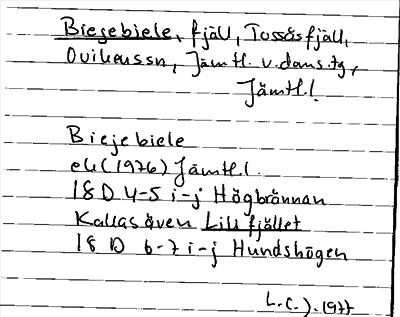 Biejebiele, fjäll, Tossåsfjäll,
Ovikens sn, Jämtl. v. doms.tg,
Jämtl.
Biejebiele
ek (1976) Jämtl.
18 D 4-5 i-j Högbrännan
Kallas även Lill fjället
18 D 6-7 i-j Hundshögen
L.C.J. 1977